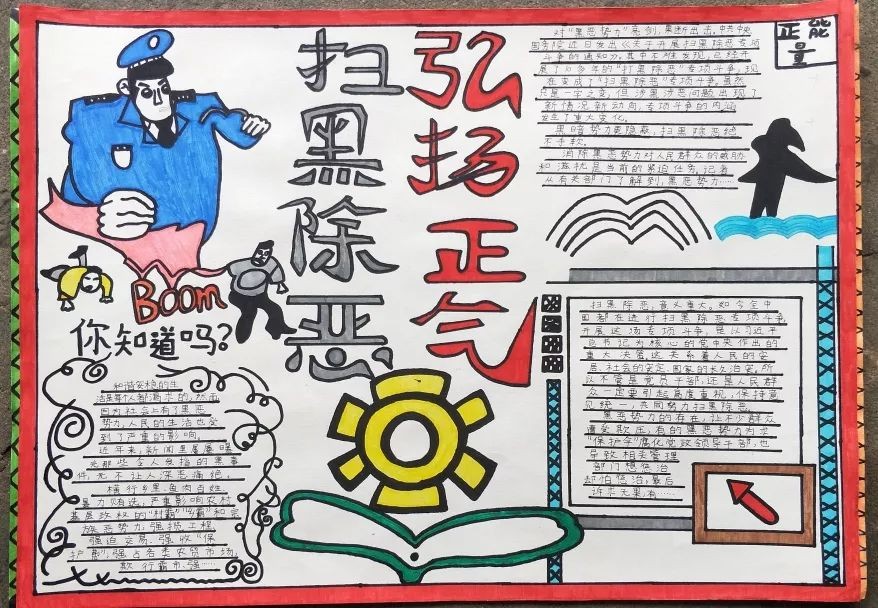 扫黑除恶
弘扬正气
正能
量
对"黑恶势力"亮剑,果断出击,中共中央
国务院近日发出《关于开展扫黑除恶专项
斗争的通知》,其中不难发现,已经开
展了10多年的"打黑除恶"专项斗争,现
在变成了"扫黑除恶"专项斗争,虽然
只是一字之变,但涉黑涉恶问题出现了
新情况新动向,专项斗争的内涵
发生了重大变化。
黑暗势力要隐蔽,扫黑除恶绝
不手软。
消除黑恶势力对人民群众的威胁
和滋扰是当前的紧迫任务,记者
从有关部门了解到,黑恶势力……
Boom
你知道吗?
和谐安稳的生
活是每个人都渴求的,然而
因为社会上有了黑恶
势力,人民的生活也受
到了严重的影响。
近年来,新闻里屡屡曝
光那些令人发指的黑事
件,无不让人深恶痛绝,
横行乡里,鱼肉百姓
暴力贿选,严重影响农村
基层政权的"村霸""乡霸"和宗
族恶势力;强揽工程
强迫交易,强收"保
护费",强占各类农贸市场,
欺行霸市,强……
扫黑除恶,意义重大。如今全中
国都在进行扫黑除恶专项斗争
开展这场专项斗争,是以习近平
总书记为核心的党中央作出的
重大决策,这关系着人民的安
居,社会的安定,国家的长久治安。所
以不管是党员干部,还是人民群
众一定要引起高度重视,保持意
见统一,共同努力扫黑除恶。
黑恶势力的存在,让不少群众
遭受欺压,有的黑恶势力为求
"保护伞"腐化党政领导干部,也
导致相关管理
部门想惩治
却怕惩治,最后
许来无果,有……